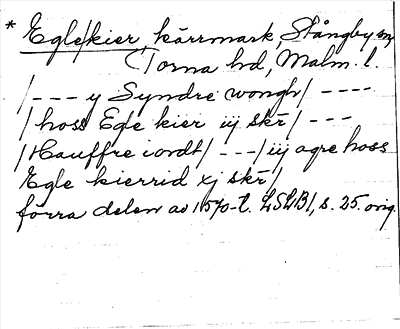 * Egle/kier, kärrmark, Stångby sn,
Torna hd, Malm. l.
/--- y Syndre wongh/ ----
/ hoss Egle kier iij skr/ ---
/Hauffre iordt/ ---/iij agre hoss
Egle kierrid xj skr/
förra delen av 1570-t. LSLB1, s. 25. orig.